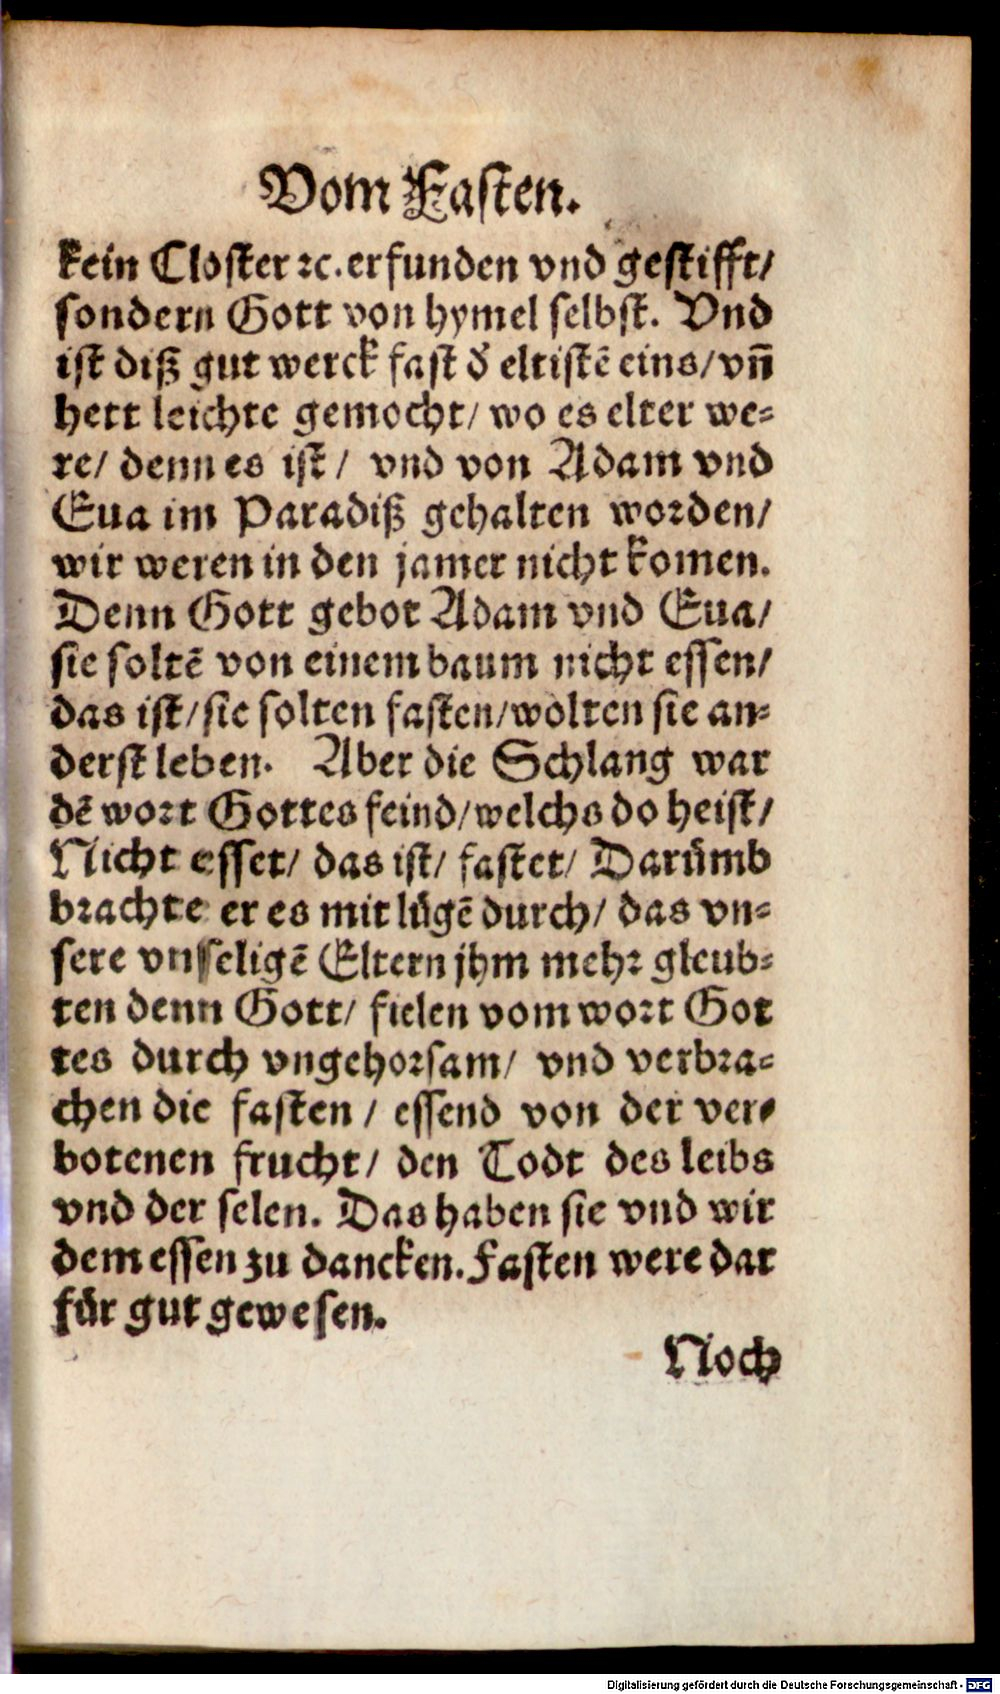 Vom Fasten.
kein Closter ꝛc. erfunden vnd gestifft/
sondern Gott von hymel selbst. Vnd
ist diß gut werck fast d̕ eltistē eins/ vn̄
hett leichte gemocht/ wo es elter we-
re/ denn es ist/ vnd von Adam vnd
Eua im Paradiß gehalten worden/
wir weren in den jamer nicht komen.
Denn Gott gebot Adam vnd Eua/
sie soltē von einem baum nicht essen/
das ist/ sie solten fasten/ wolten sie an-
derst leben. Aber die Schlang war
dē wort Gottes feind/ welchs do heist/
Nicht esset/ das ist/ fastet/ Darümb
brachte er es mit lügē durch/ das vn-
sere vnseligē Eltern jhm mehr gleub-
ten denn Gott/ fielen vom wort Got
tes durch vngehorsam/ vnd verbra-
chen die fasten/ essend von der ver-
botenen frucht/ den Todt des leibs
vnd der selen. Das haben sie vnd wir
dem essen zu dancken. Fasten were dar
für gut gewesen.
Noch
Digitalisierung gefördert durch die Deutsche Forschungsgemeinschaft - DFG